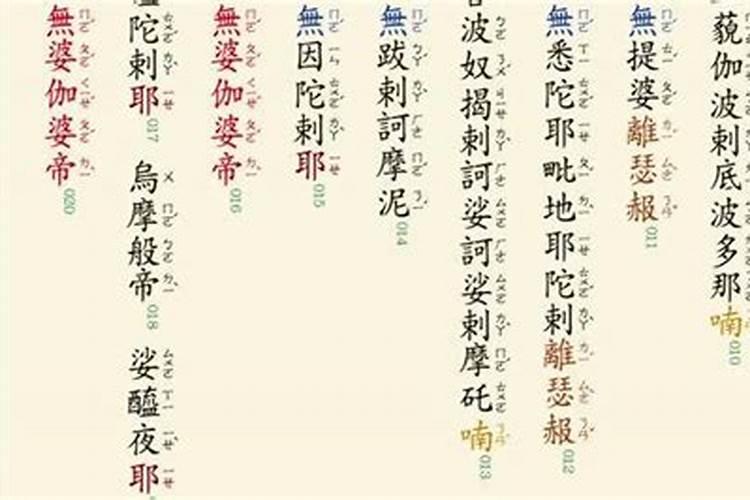 藐伽波剌底波多那喃010
無提婆離瑟赧011
無悉陀耶毗地耶陀剌離瑟赧012
波奴揭剌訶娑訶娑剌摩矺喃013
無跋剌訶摩泥014
無因陀剌耶015
無婆伽婆帝016
陀剌耶017 烏摩般帝018 娑醯夜耶
無婆伽婆帝020